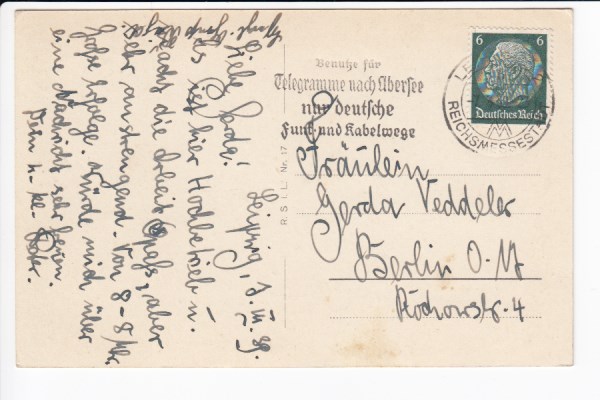 Leipzig, 8. III. 39.
Liebe Gerda!
Es ist hier Hochbetrieb u.
macht die Arbeit Spaß, aber
sehr anstrengend. Von 8-8 Uhr.
Große Erfolge. Würde mich über
eine Nachricht sehr freuen.
Dein
Benutze für
Telegramme nach Übersee
nur deutsche
Funk- und Kabelwege
6 6
Deutsches Reich
REICHSMESSEST
R.S.L.L. Nr. 17
Fräulein
Gerda Veddeler
Berlin O.17
Rochowstr. 4